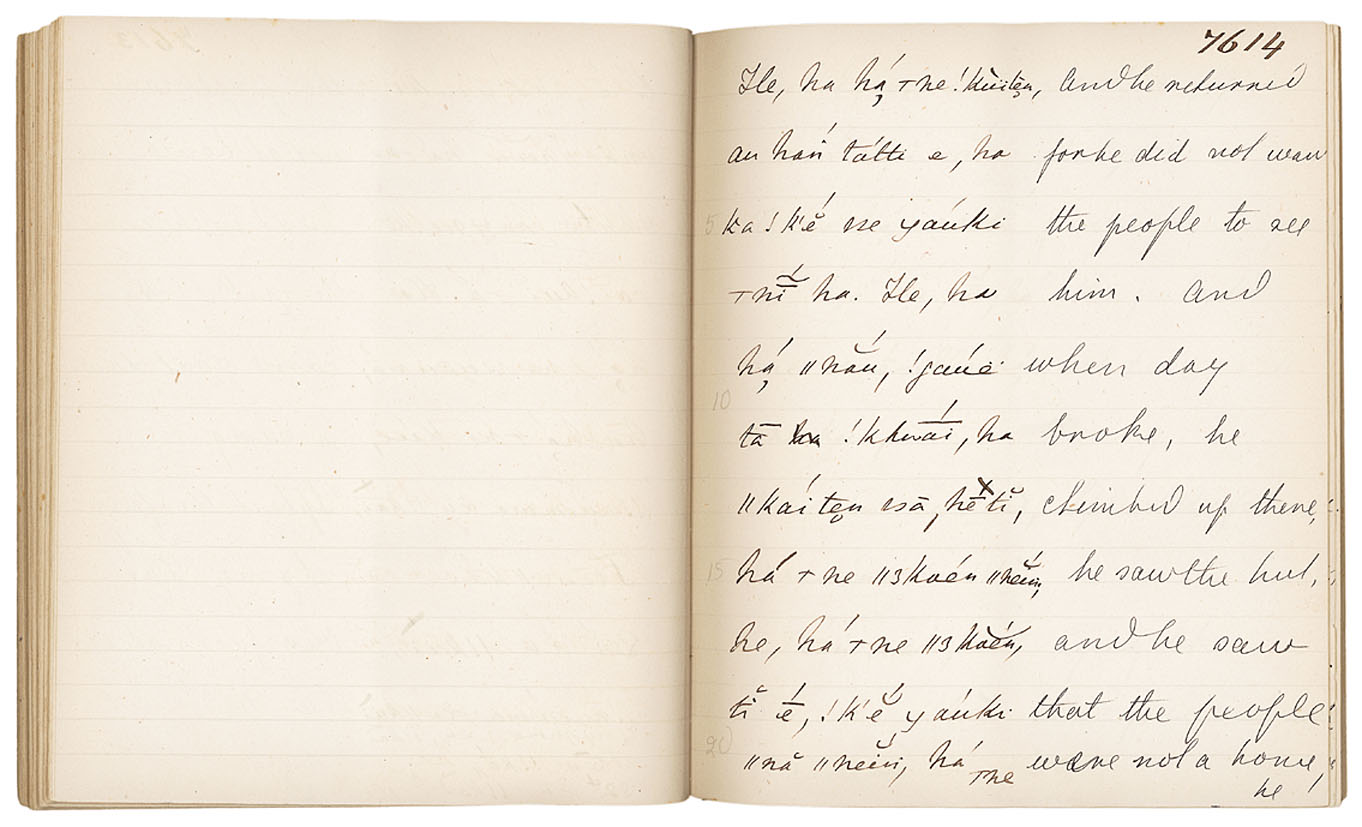 7614
He, ha há̦ ⊤ne !kúïte̦n, and he returned
au hań tátti e, ha for he did not wan
5 ka !k'ĕ́ ne yaúki the people to see
⊤nī̆́ ha. He, ha him. and
há̦ ǁnắu, !gaúë when day
10
tā ha !khwāí, ha broke, he
ǁkáite̦n ssā, hē tĭ, climbed up there,
15 há ⊤ne ǁ3koén ǁnĕín, he saw the hut,
he, há ⊤ne ǁ3koén, and he saw
tĭ ḗ, !k'ĕ́ yaúki that the people
20 ǁnă ǁnĕín, há ⊤ne were not a home,
he